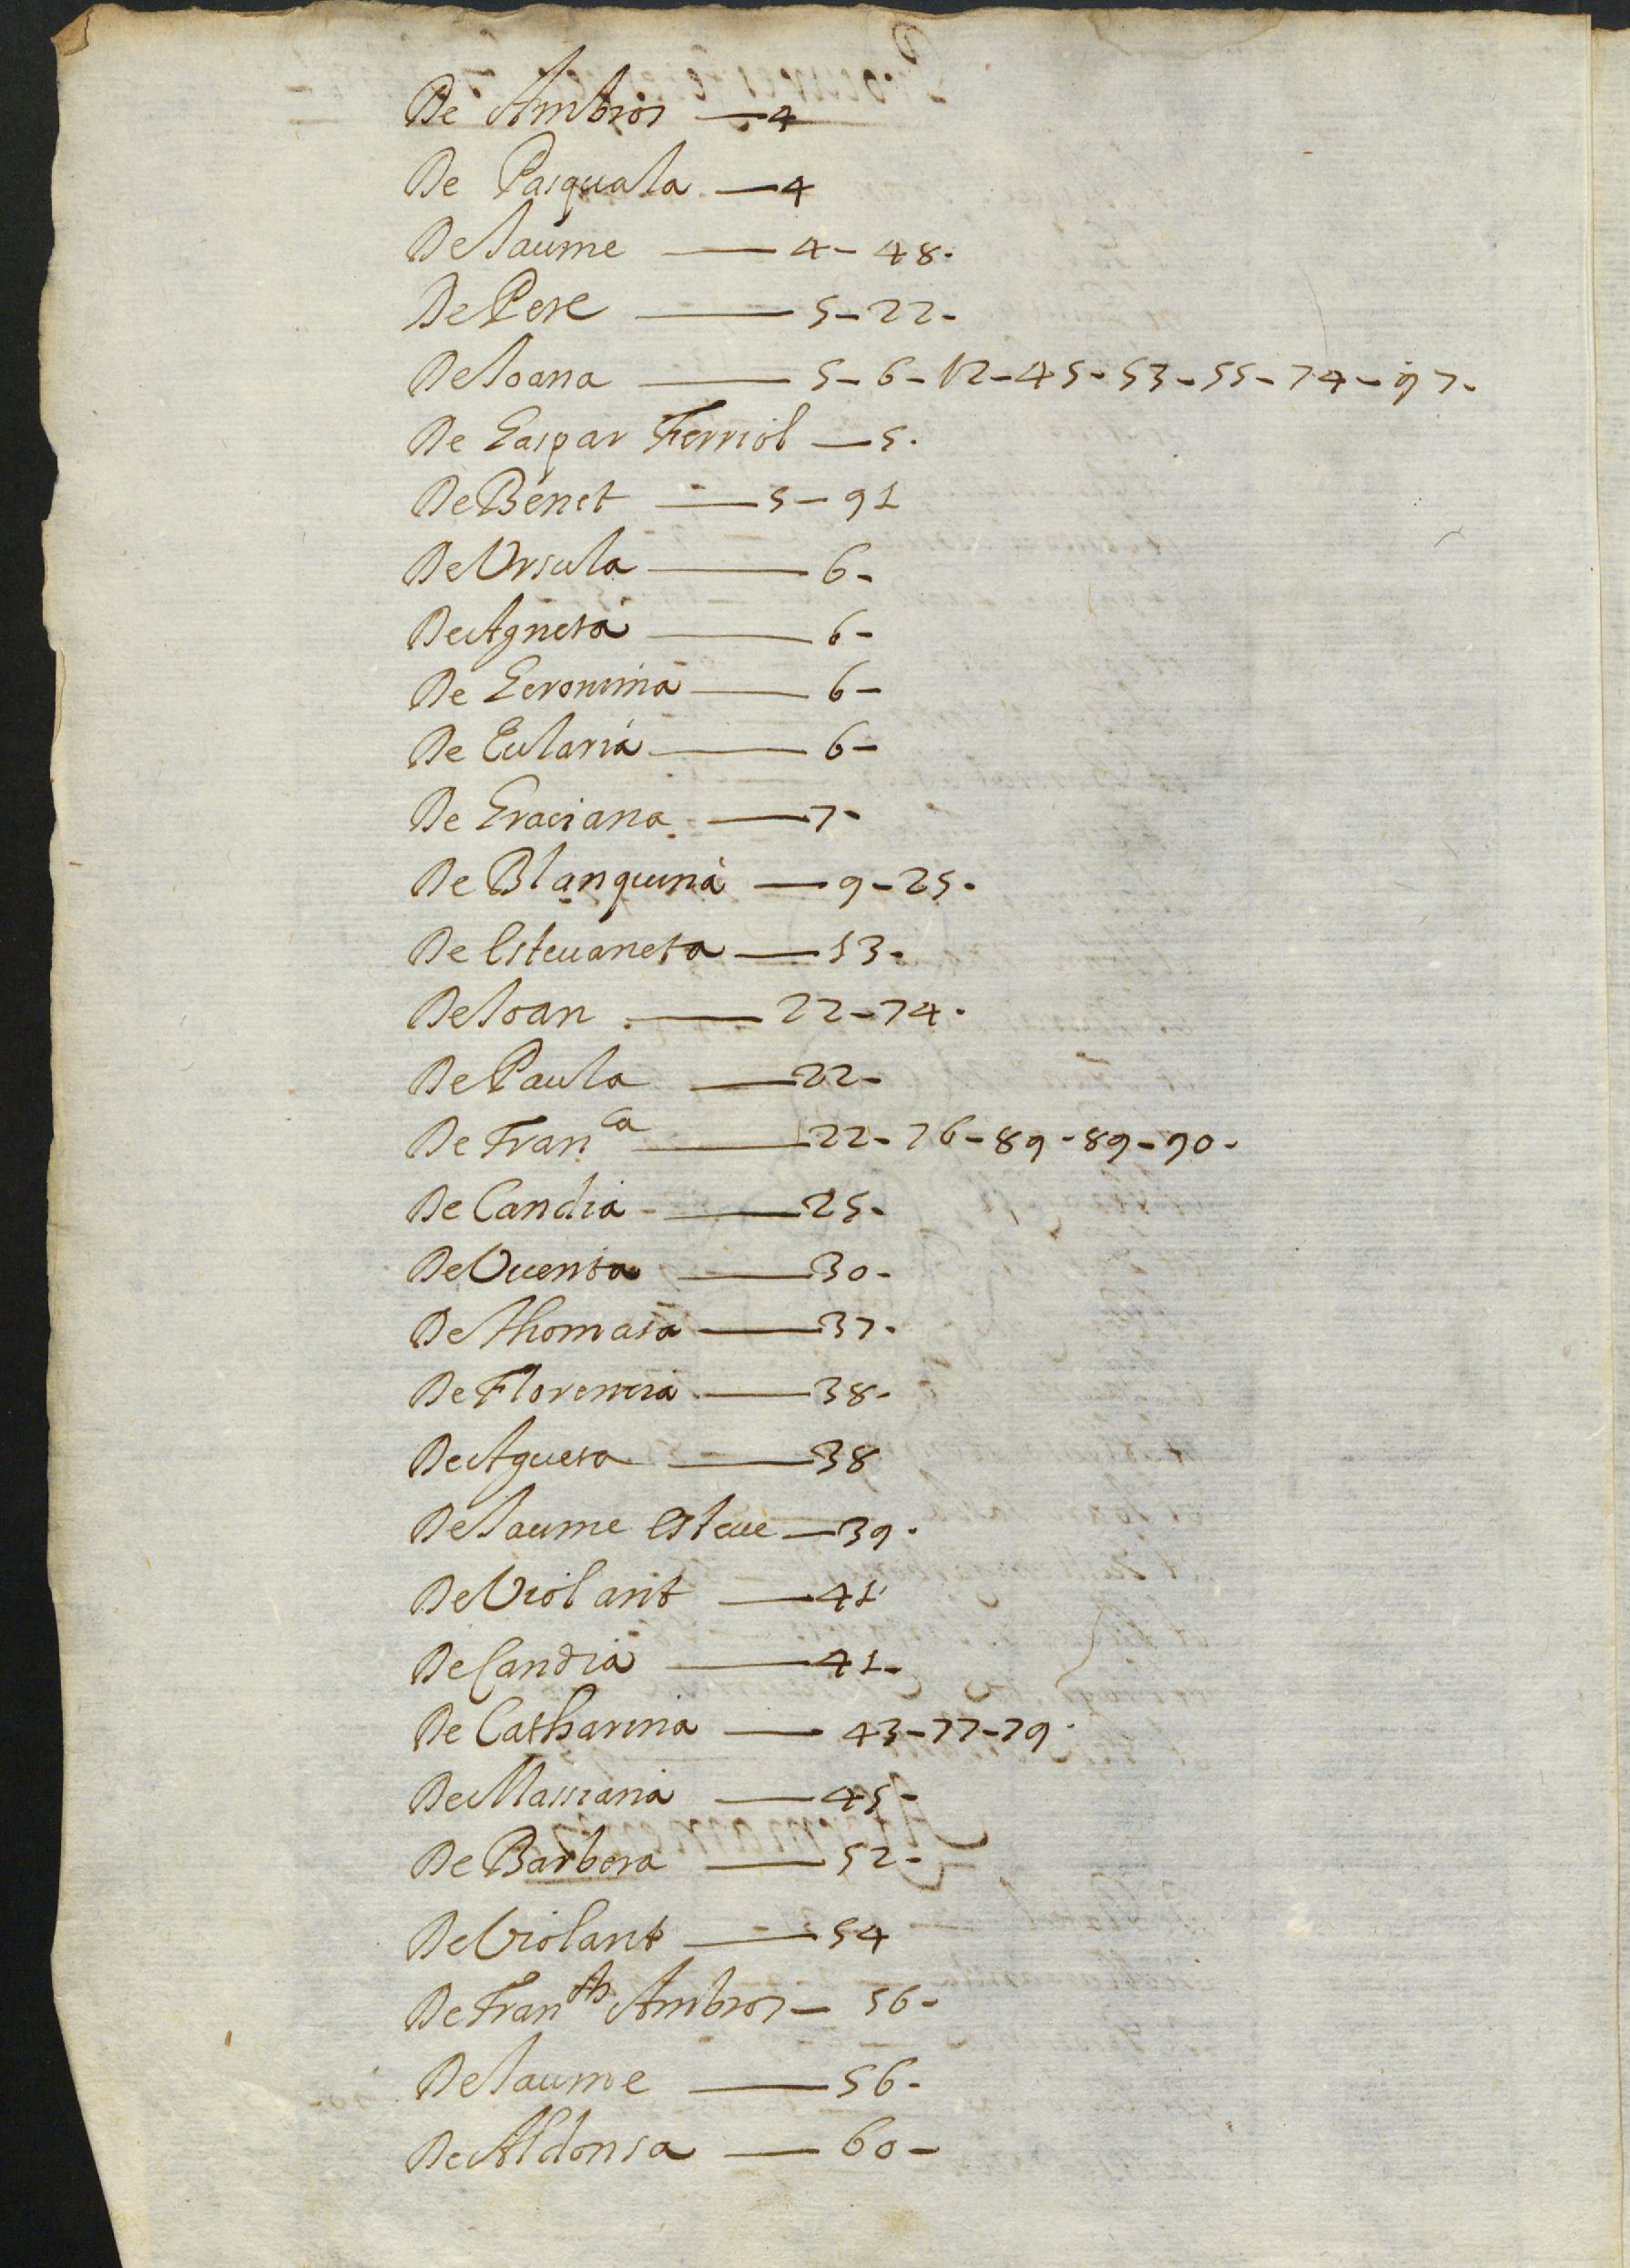 De Ambros — 4
De Pasquala — 4
De Jaume — 4 - 48.
De Pere — 5 - 22 -
De Joana — 5 - 6 - 12 - 45 - 53 - 55 - 74 - 97.
De Gaspar Ferriol — 5.
De Benet — 5 - 91
De Vrsula — 6 -
De Agneta — 6 -
De Geronima — 6 -
De Eularia — 6 -
De Graciana — 7 -
De Blanquina — 9 - 25.
De Esteuaneta — 13.
De Joan — 22 - 74.
De Paula — 22 -
De Fran^ca — 22 - 76 - 89 - 89 - 90.
De Candia — 25.
De Vicenta — 30 -
De Thomasa — 37.
De Florencia — 38 -
De Agueta — 38
De Jaume Esteue — 39.
De Violant — 41
De Candia — 41 -
De Catharina — 43 - 77 - 79.
De Massiana — 45 -
De Barbera — 52 -
De Violant — 54
De Fran^ch Ambros — 56 -
De Jaume — 56 -
De Aldonsa — 60 -